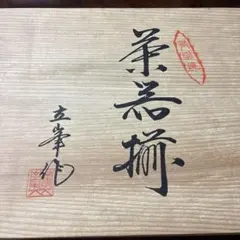 茶器揃
立峯作